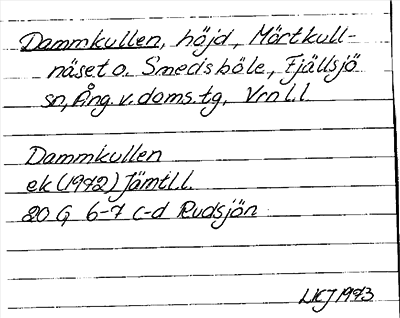 Dammkullen, höjd, Mörtkull-
näset o. Smedsböle, Fjällsjö
sn, Ång. v. doms.tg, Vrnl.l.
Dammkullen
ek (1972) Jämtl.l.
20 G 6-7 c-d Rudsjön
LKJ 1973